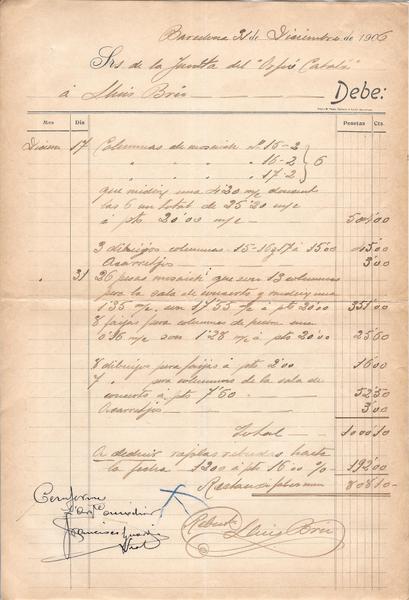 Barcelona 31 de Diciembre de 1906
Srs de la Junta del "Orfeó Català"
á Lluis Brú Debe:
Mes Dia Pesetas Cts.
Diciem 17 Columnas de mosaich Nº 15-2
" " " 16-2 } 6
" " " 17-2
que midiendo una 4'20 m/c donant
las 6 un total de 25'20 m/c
á pts 20'00 m/c 504'00
3 dibuijos columnas 15-16 y 17 á 15'00 45'00
Acarretjos 3'00
" 31 26 pesas mosaich que son 13 columnas
para la sala de conciertos y midiendo una
1'35 m/c, son 17'55 m/c á pts 20'00 351'00
8 faijas para columnas de
0'16 m/c son 1'28 m/c á pts 20'00 25'60
8 dibuijos para faijas á pts 2'00 16'00
7 " para columnas de la sala de
concierto á pts 7'50 52'50
Acarretjos 3'00
Total 1000'10
A deducir rajolas rebudas hasta
la fecha 1200 á pts 16'00 % 192'00
Restan 808'10
Conforme
Francisco
Rebut
Lluis Brú